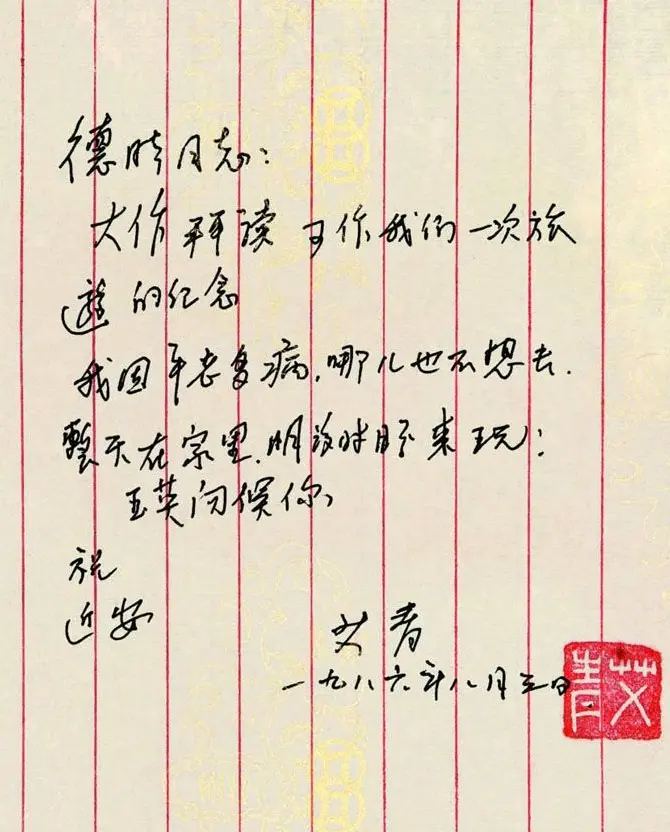 德同志:
大作拜读 可作我们一次旅
遊的纪念
我因年老多病,哪儿也不想去.
整天在家里.时来玩:
英问候你,
祝
近安
艾青
一九八六年八月日
艾青